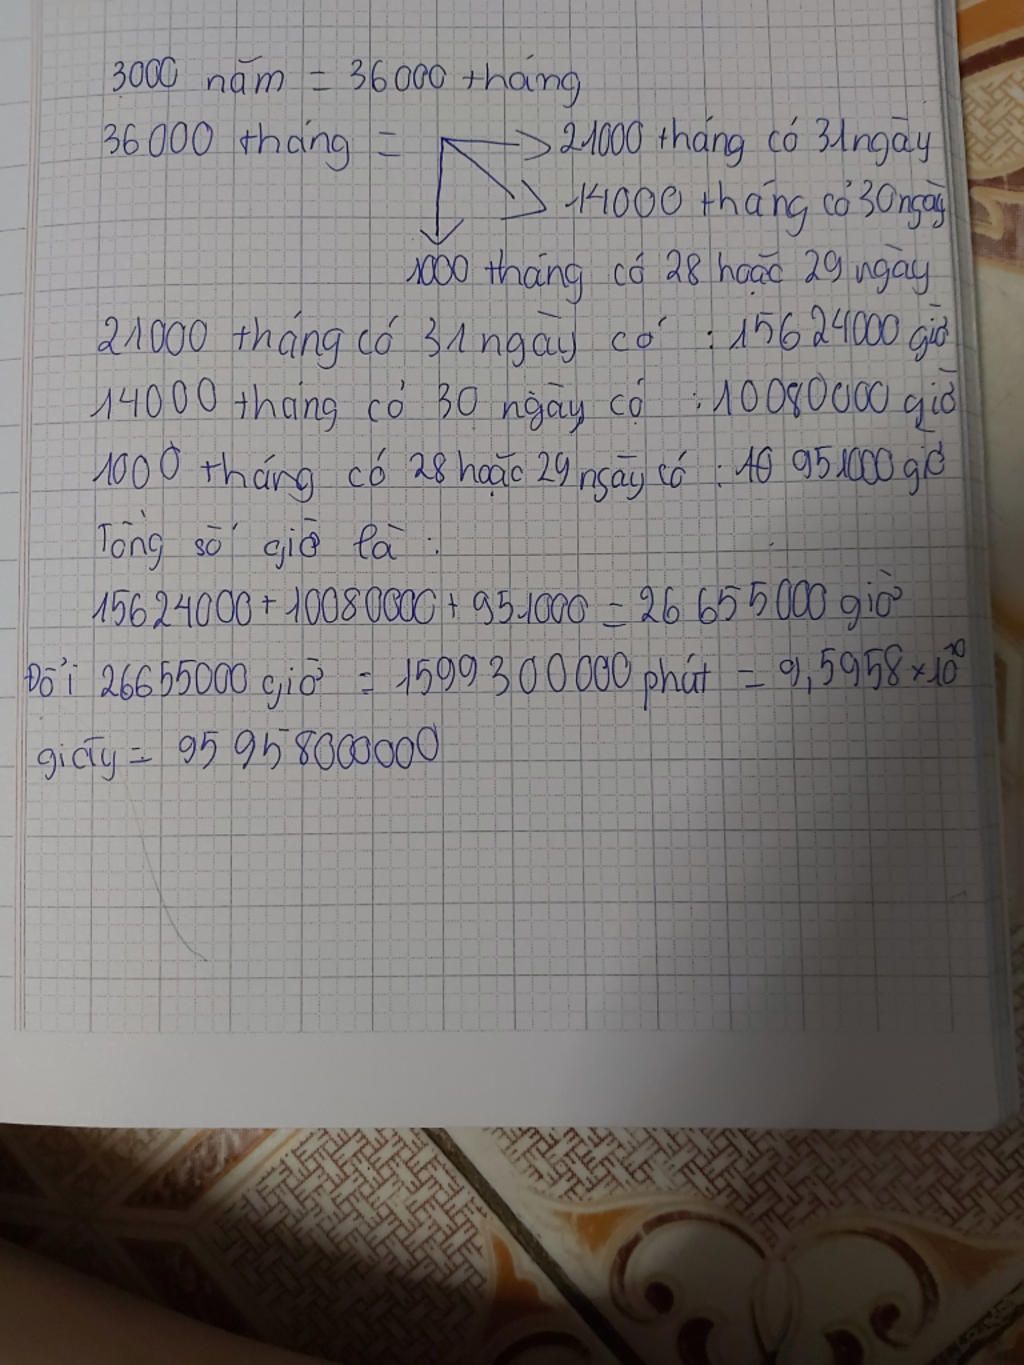 3000 năm = 36000 tháng
36000 tháng = 21000 tháng có 31 ngày
14000 tháng có 30 ngày
1000 tháng có 28 hoặc 29 ngày
21000 tháng có 31 ngày có : 15624000 giờ
14000 tháng có 30 ngày có : 10080000 giờ
1000 tháng có 28 hoặc 29 ngày có : 951000 giờ
Tổng số giờ là :
15624000 + 10080000 + 951000 = 26655000 giờ
Đổi 26655000 giờ = 1599300000 phát = 9,5958 × 10¹⁰
giây = 95958000000